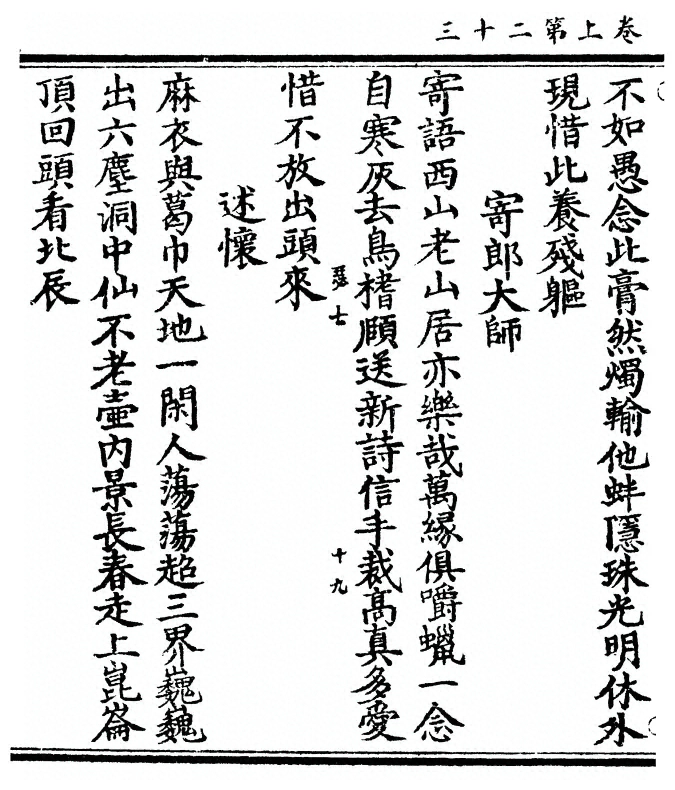 卷上第二十三
不如愚念此膏然燭輸他蚌隱珠光明休外
現惜此養殘軀
寄郎大師
寄語西山老山居亦樂哉萬緣俱嚼蠟一念
自寒灰去鳥楮願送新詩信手裁高真多愛
十九
惜不放出頭來
述懷
麻衣與葛巾天地一閑人蕩蕩超三界巍巍
出六塵洞中仙不老壺內景長春走上崑崙
頂回頭看北辰